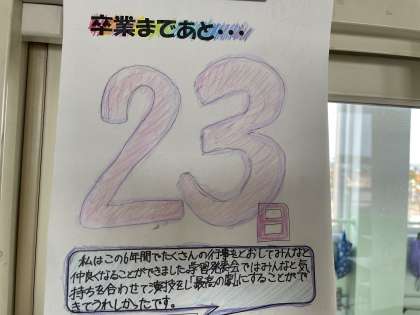 卒業まであと・・・
23
日
私はこの6年間でたくさんの行事をとおしてみんなと
仲良くなることができました学習発表会ではみんなと気
持ちを合わせて演技をし「最高の劇」にすることがで
きてうれしかったです。